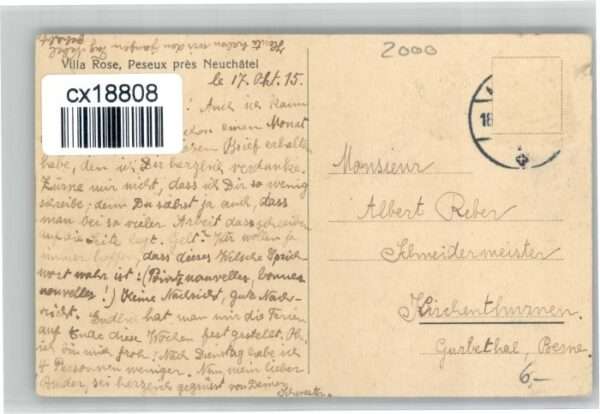 Heute haben wir den ganzen Tag Nebel
gehabt
Villa Rose, Peseux près Neuchâtel
le 17. Okt. 15.
cx18808
! Auch ich kann
schon einen Monat
Brief erhalten
habe, den ich Dir herzlich verdanke.
Zürne mir nicht, dass ich Dir so wenig
schreibe; denn Du sahst ja auch, dass
man bei so vieler Arbeit das schreiben
auf die Seite legt. Gelt? Wir wollen ja
immer hoffen, dass dieses Welsche Sprich-
wort wahr ist: (Point nouvelles, bonnes
nouvelles!) Keine Nachricht, gute Nach-
richt. Endlich hat man mir die Ferien
auf Ende diese Wochen fest gestellt. Oh,
ich bin nur froh! Nach Dienstag habe ich
4 Personnen weniger. Nun mein lieber
Bruder, sei herzlich gegrüsst von Deiner
Schwester.
2000
18
Monsieur
Albert Reber
Schneidermeister
Kirchenthurnen.
Gürbethal, Berne.
6,-